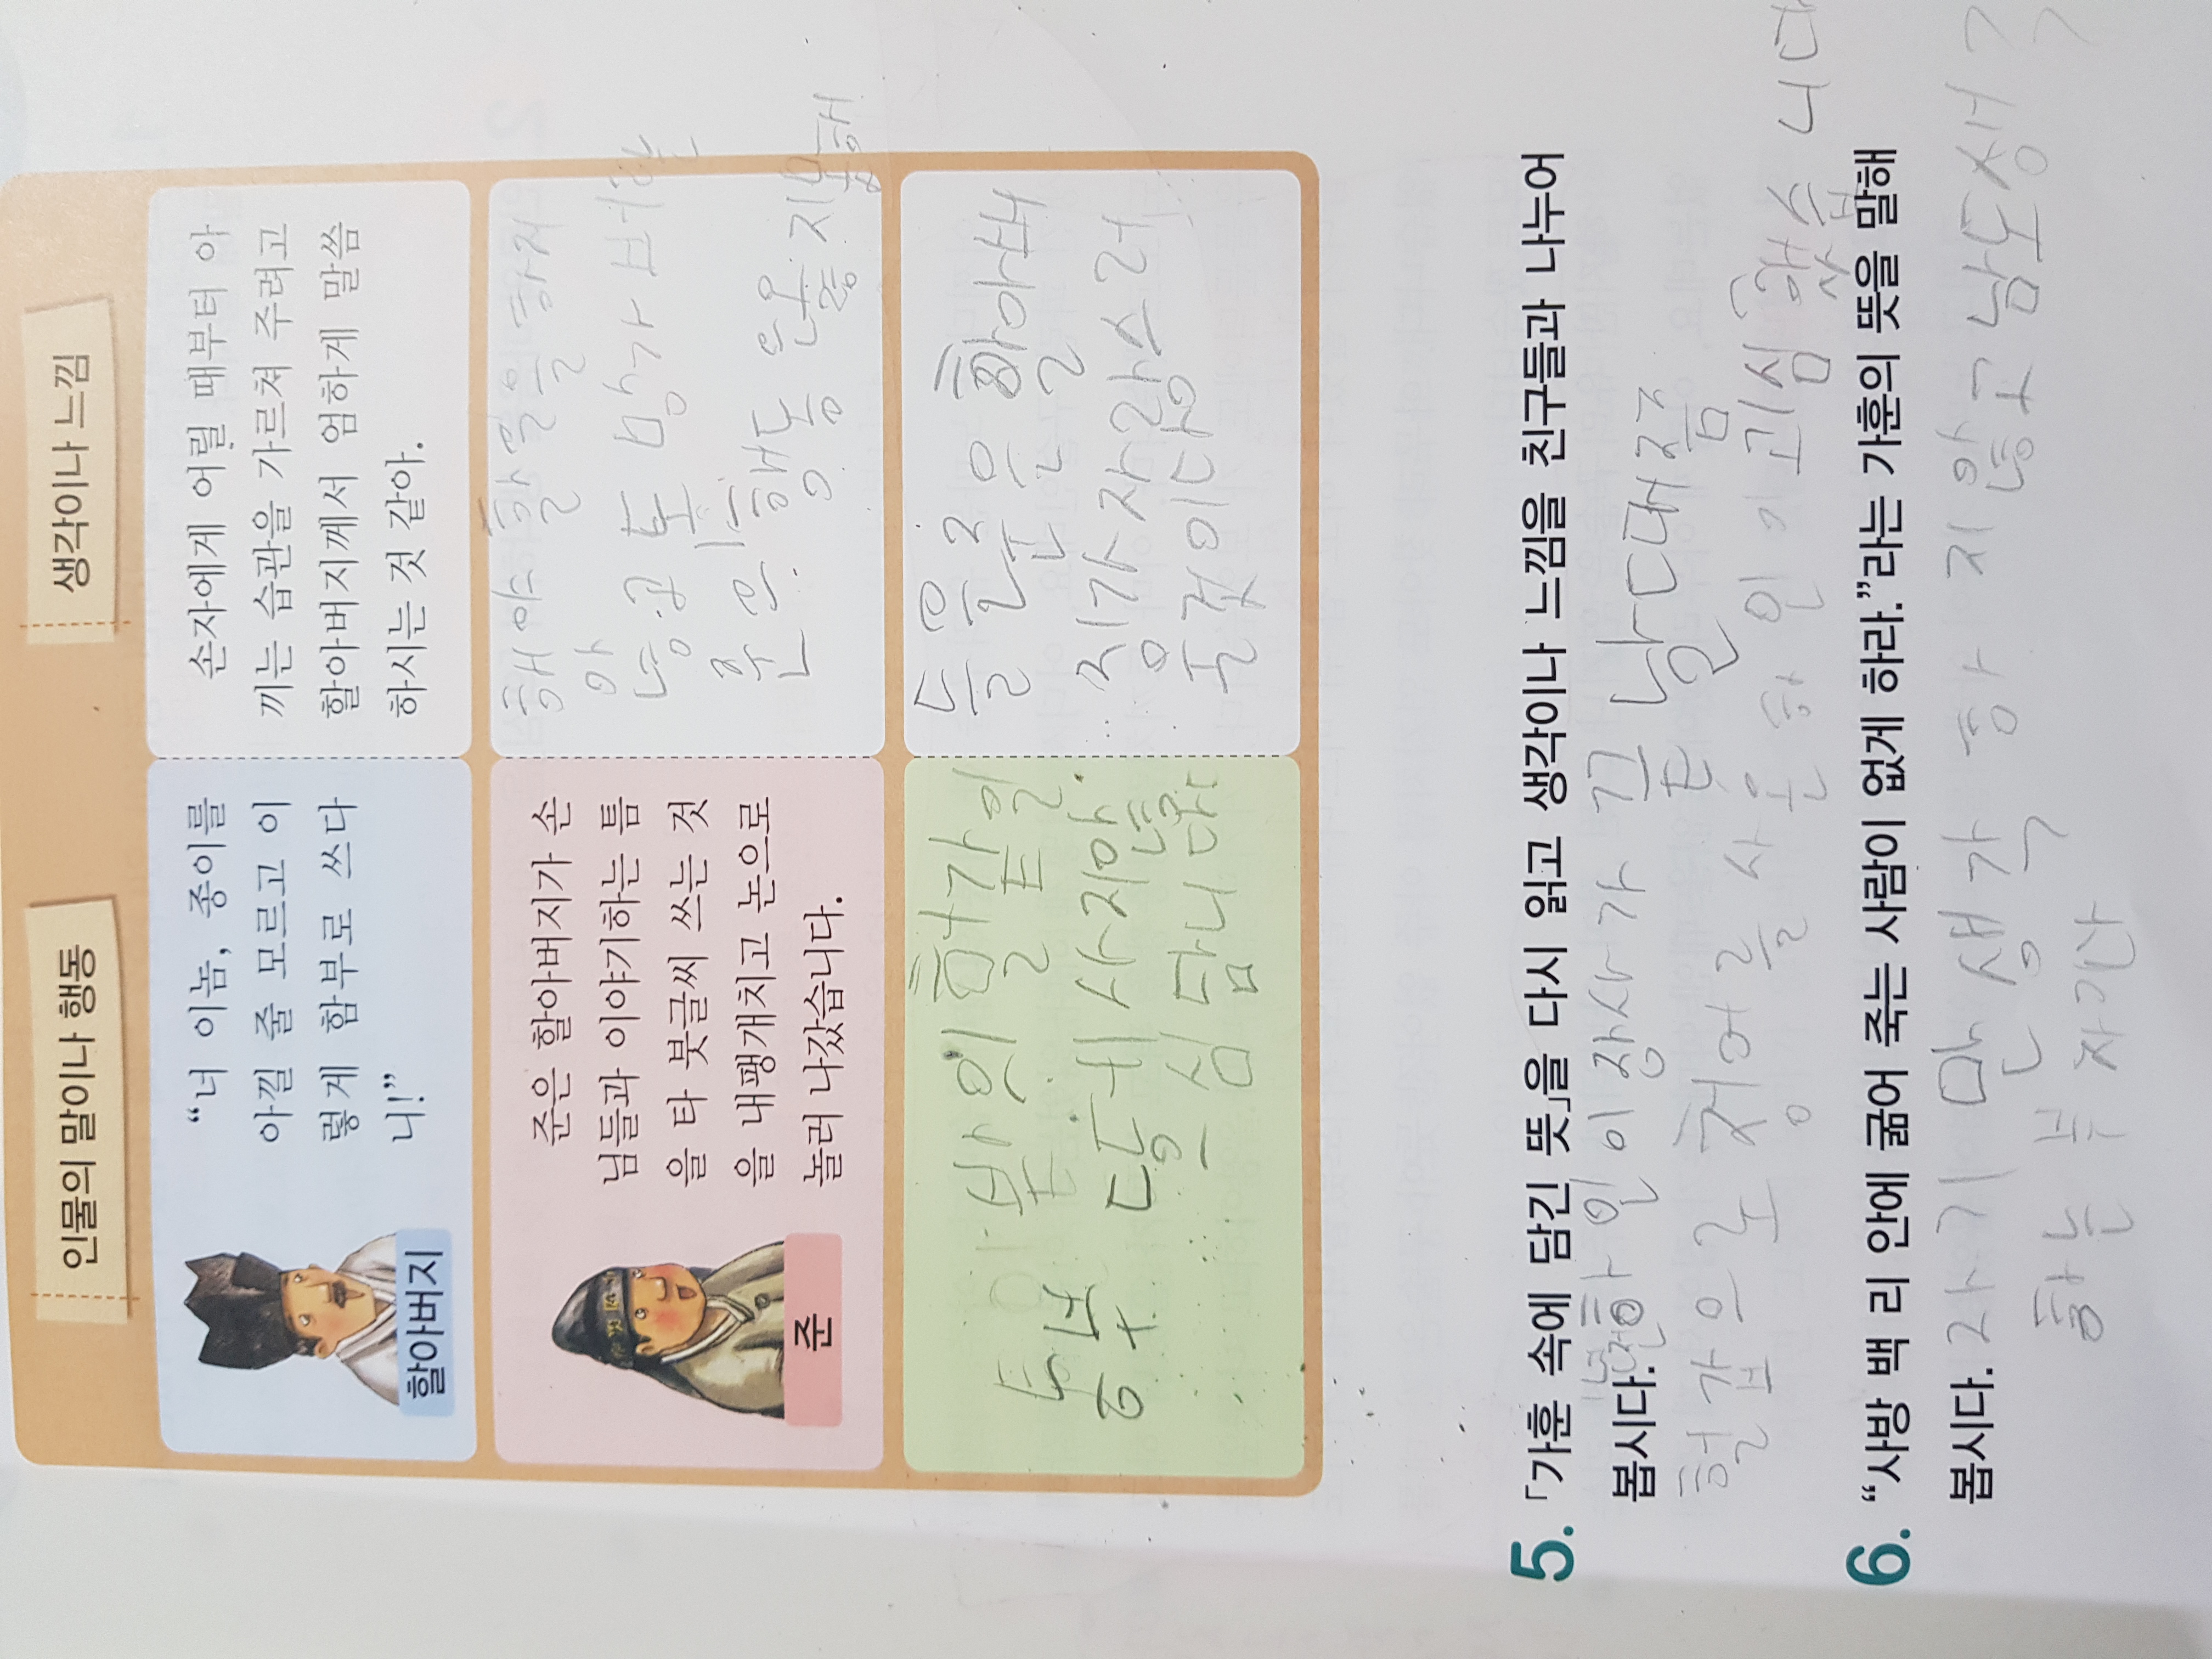 인물의 말이나 행동
생각이나 느낌
“너 이놈, 종이를
아낄 줄 모르고 이
렇게 함부로 쓰다
니!”
할아버지
손자에게 어릴 때부터 아
끼는 습관을 가르쳐 주려고
할아버지께서 엄하게 말씀
하시는 것 같아.
준은 할아버지가 손
님들과 이야기하는 틈
을 타 붓글씨 쓰는 것
을 내팽개치고 논으로
놀러 나갔습니다.
준
해야 할 일을 하지
않고 도망가 버린
준의 행동은 옳지 못해
농부
밥의 헐값일
땅게 사지않
으심 담니다
들은 준은 할아버
지가 자랑스러
울것이다
5. 「가훈 속에 담긴 뜻」을 다시 읽고 생각이나 느낌을 친구들과 나누어
봅시다.
하인이 장사가 끝날 때쯤
헐값으로 청어를 사온 하인 괴심했습니다
6. “사방 백 리 안에 굶어 죽는 사람이 없게 하라.”라는 가훈의 뜻을 말해
봅시다. 자기만 생각하지 않고 남도생각
하는 부자가